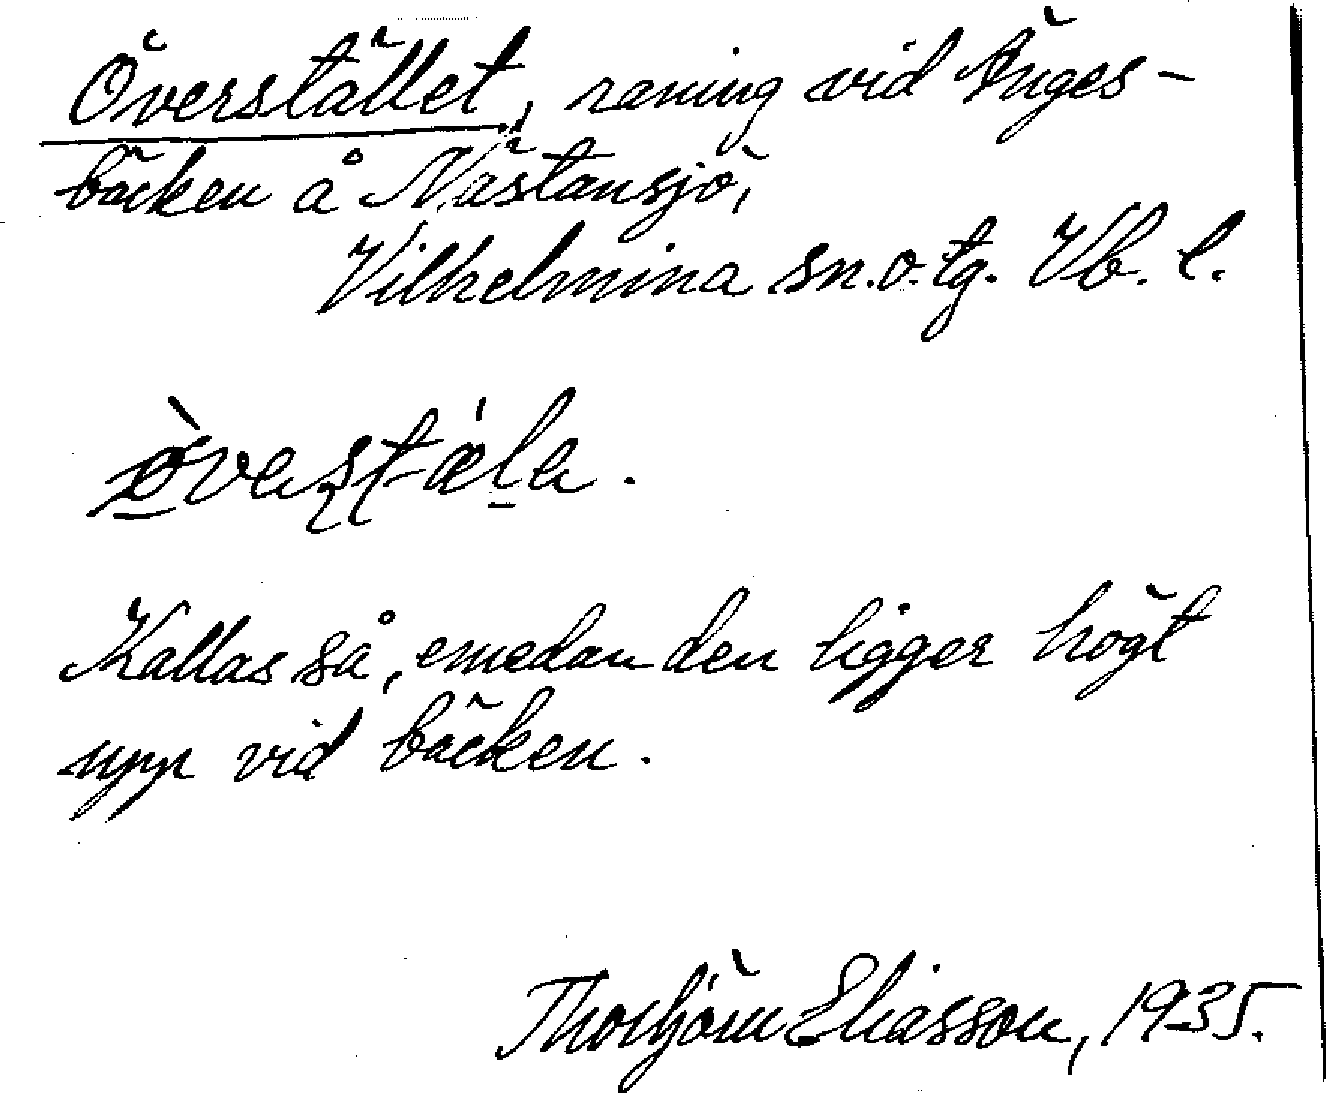 Överstället, rening vid Änges-
bäcken å Nästansjö,
Vilhelmina sn. o. tg. Vb. l.
Kallas så, emedan den ligger högt
upp vid bäcken.
Thorbjörn Eliasson, 1935.